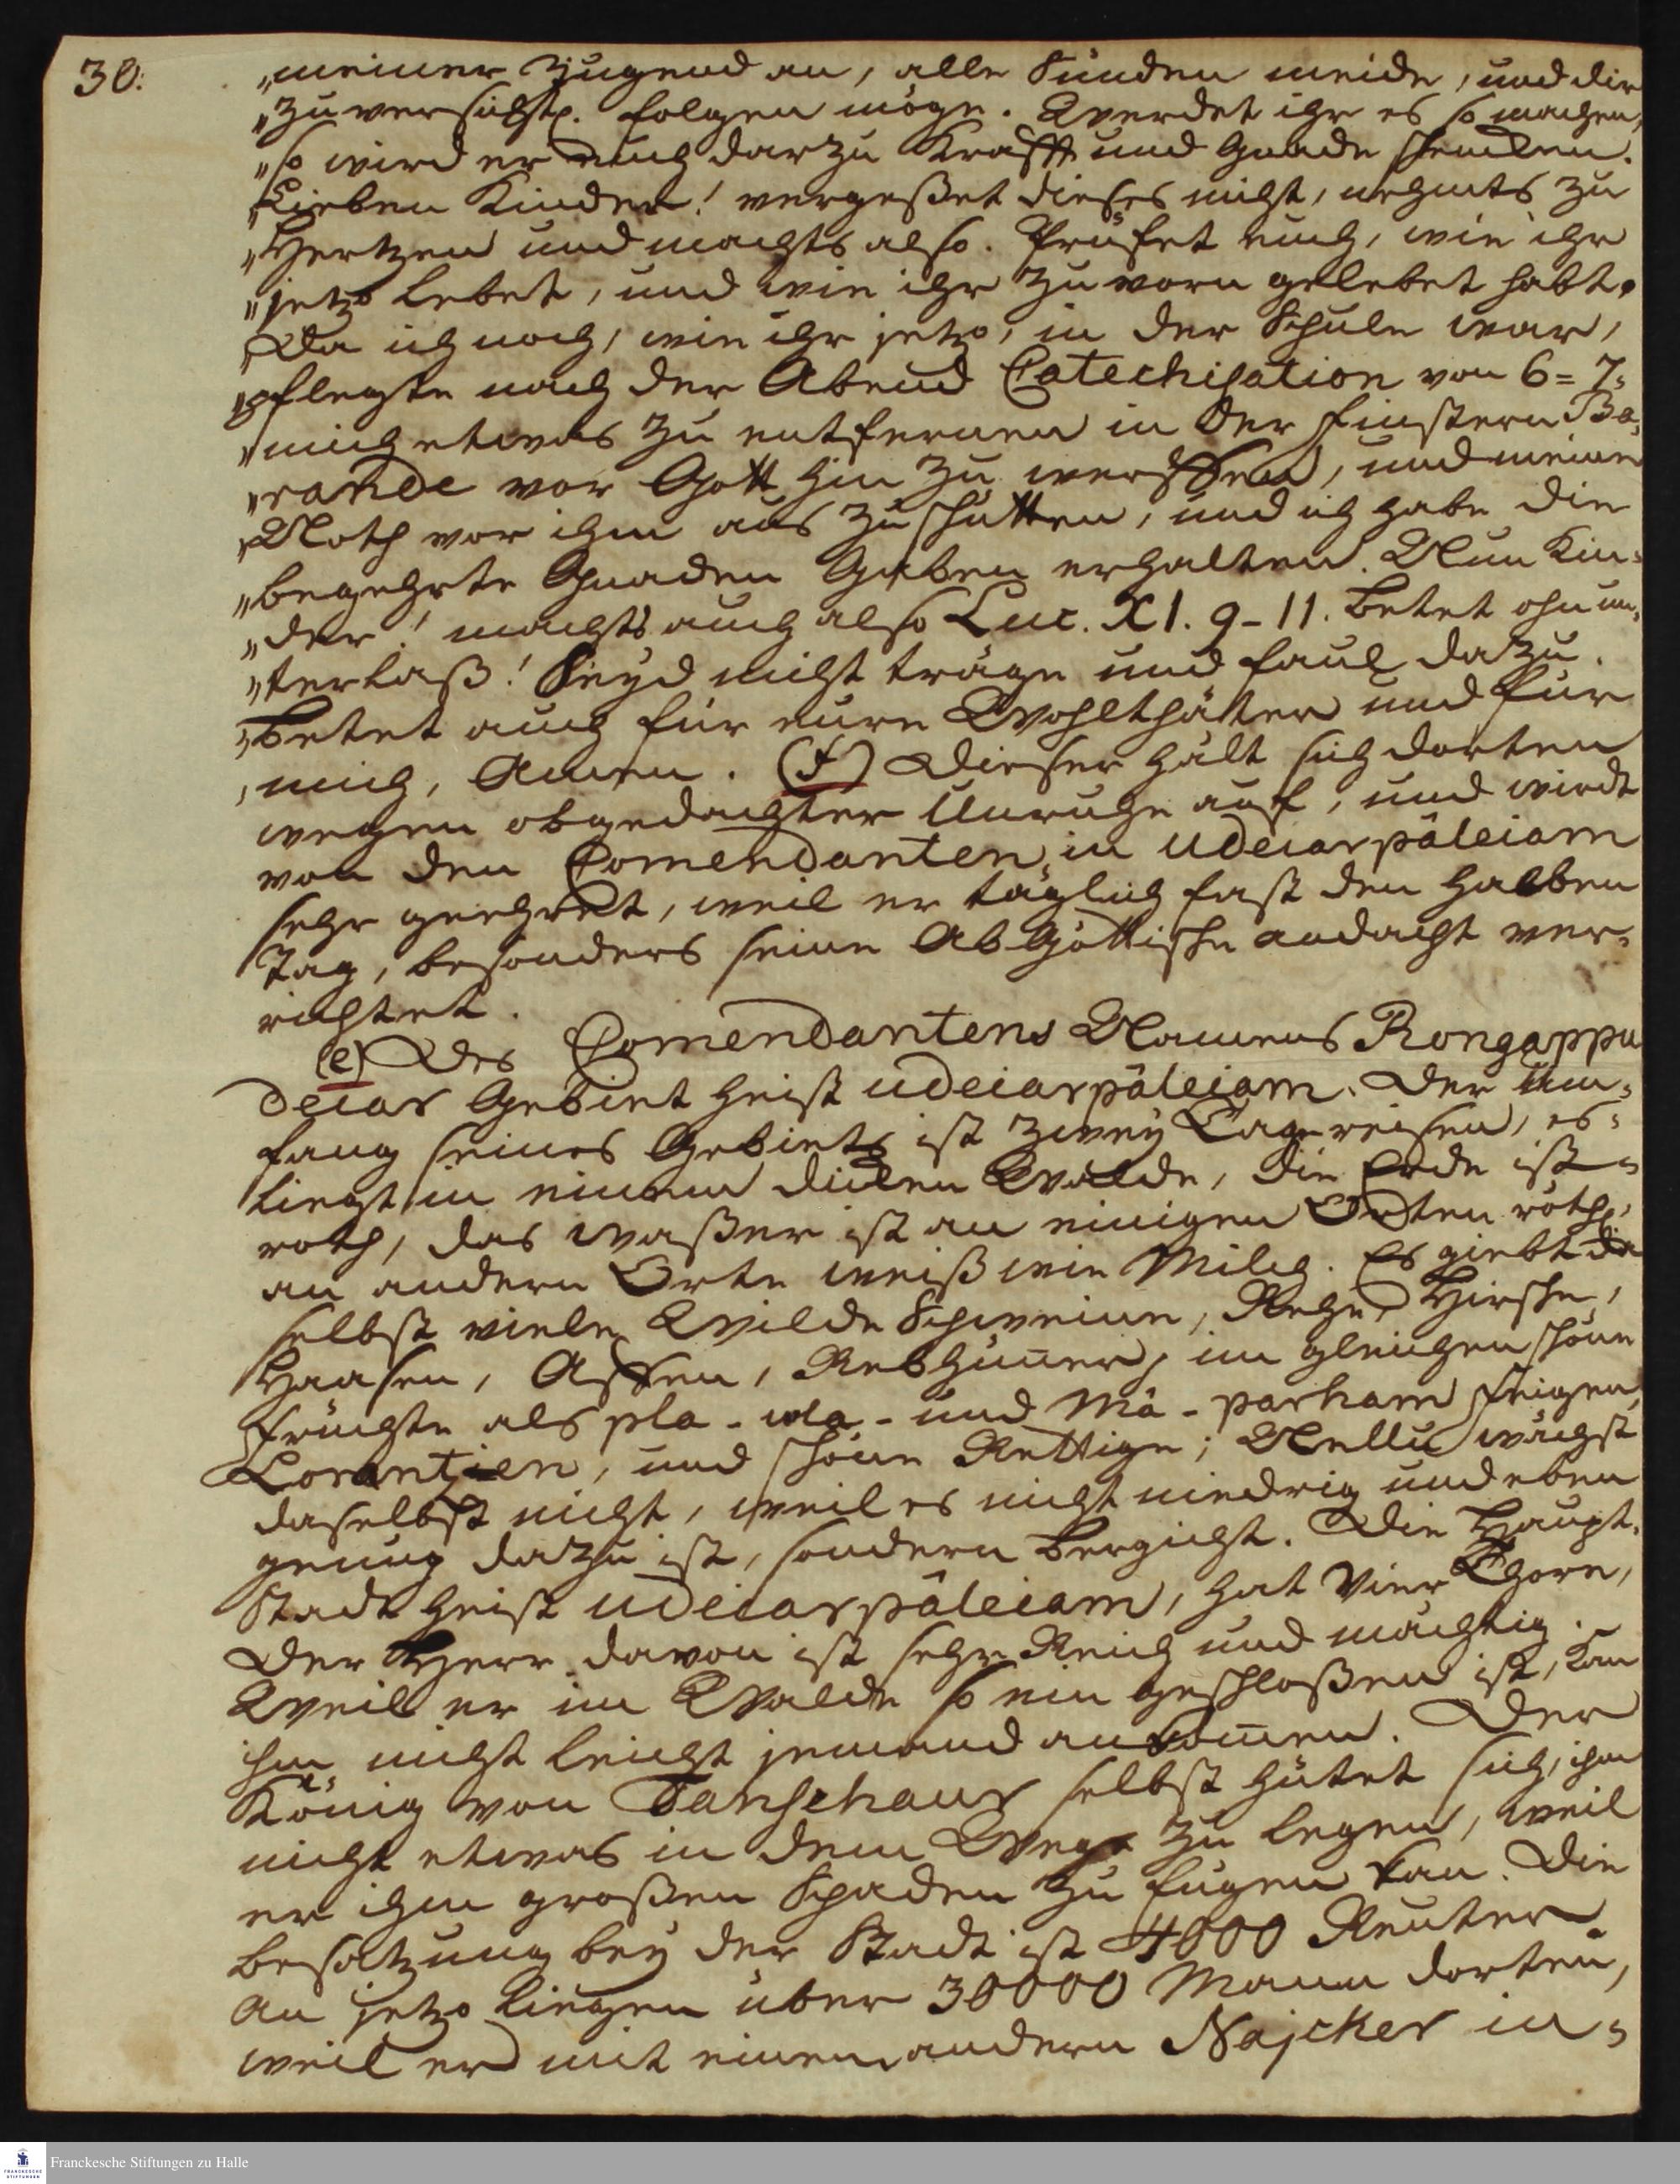 30.
„meiner Jugend an, alle Sünden meide, und dir
„zuversichtl. folgen möge. Werdet ihr es so machen,
„so wird er euch darzu Krafft und Gnade schencken.
„Lieben Kinder! vergeßet dieses nicht, nehmts zu
„Hertzen und machts also. Prüfet euch, wie ihr
„jetzo lebet, und wie ihr zuvorn gelebet habt.
„Da ich noch, wie ihr jetzo, in der Schule war,
„pflegte nach der Abend Catechisation von 6=7.
„mich etwas zu entfernen in der finstern Ba=
„rande vor Gott hin zu werffen, und meine
„Noth vor ihm aus zuschütten, und ich habe die
„begehrte Gnaden Gaben erhalten. Nun Kin=
„der! machts auch also Luc. XI. 9-11. Betet ohn un=
„terlaß! Seyd nicht träge und faul dazu.
„Betet auch für eure Wohlthäter und für
„mich, Amen. (f) Dieser hält sich dorten
wegen obgedachter Unruhe auf, und wirdt
von den Comendanten in udeiarpâleiam
sehr geehret, weil er täglich fast den halben
Tag, besonders seine Abgöttische andacht ver=
richtet.
(e) Des Comendantens Namens Rongappu
deiar Gebiet heist udeiarpâleiam. Der Um=
fang seines Gebiets ist zwey Tagereisen, es=
liegt in einem dicken Walde, die Erde ist=
roth, das waßer ist an einigen Orten röthl.
an andern Orte weiß wie Milch. Es giebt da
selbst viele Wilde Schweine, Rehe, Hirsche,
Haasen, Affen, Rebhüner, im gleichen schöne
Früchte als pla - wa - und Mâ - parham Feigen,
Lorantzien, und schöne Rettige; Nellu wächst
daselbst nicht, weil es nicht niedrig und eben
genug dazu ist, sondern Bergicht. Die Haupt=
Stadt heist udeiarpâleiam, hat Vier Thore,
Der Herr davon ist sehr Reich und mächtig.
Weil er im Walde so ein geschloßen ist, kan
ihm nicht leicht jemand ankomen. Der
König von Tanschaur selbst hütet sich, ihm
nicht etwas in dem Wege zu legen, weil
er ihm großen Schaden zu fügen kan. Die
Besatzung bey der Stadt ist 4000 Reuter.
An jetzo liegen über 30000 Mann dorten,
weil er mit einem andern Najcker in=
Franckesche Stiftungen zu Halle
FRANCKESCHE
STIFTUNGEN